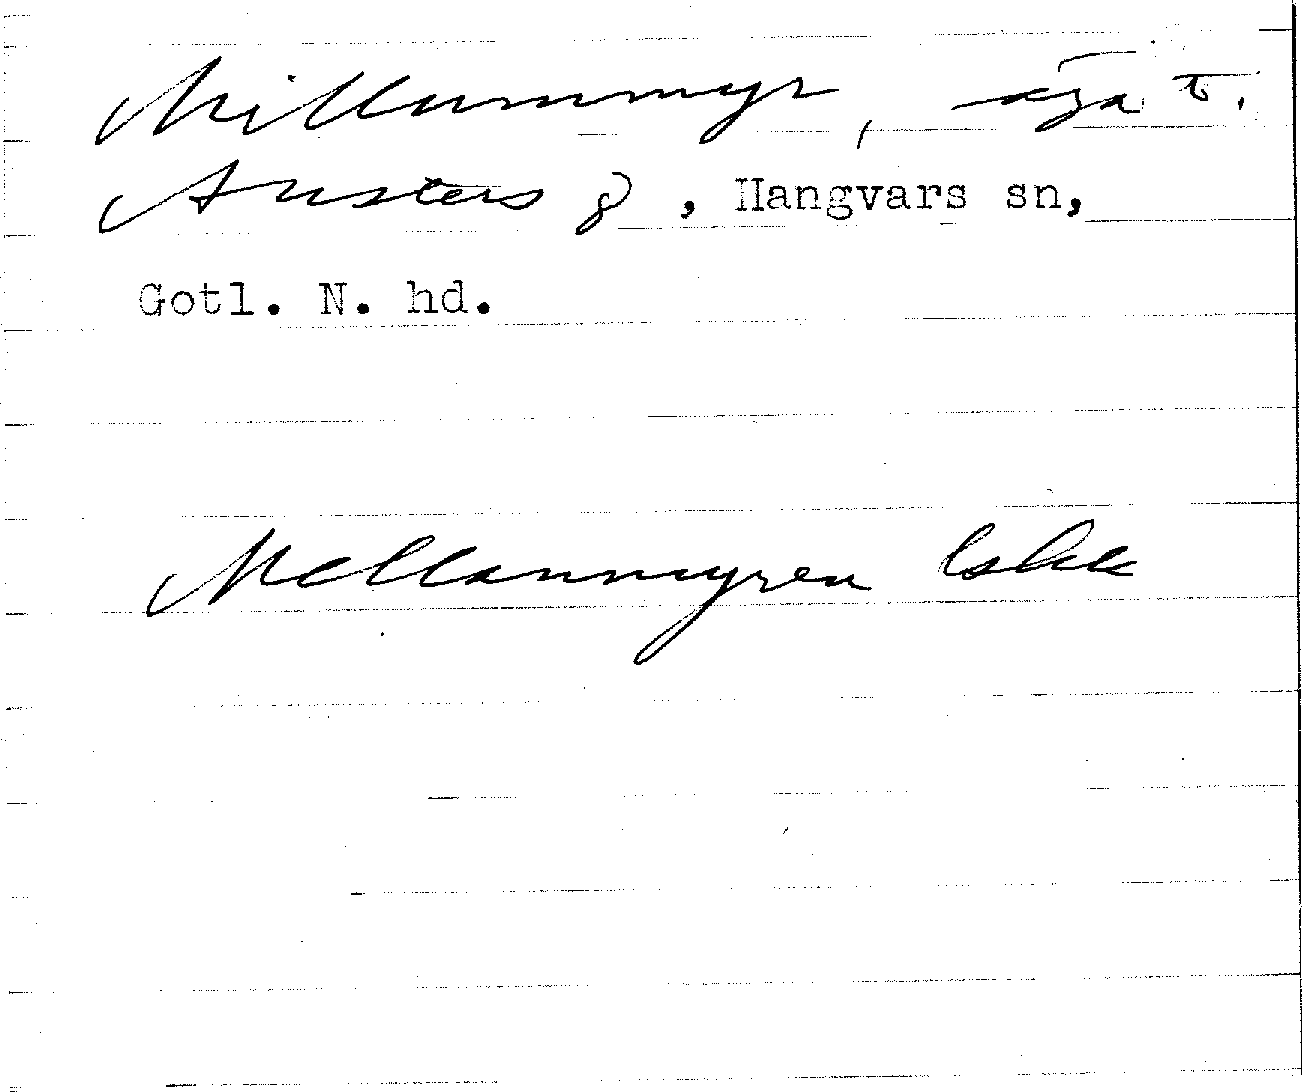 Millummyr, äga t.
Austers g, Hangvars sn,
Gotl. N. hd.
Mellanmyren